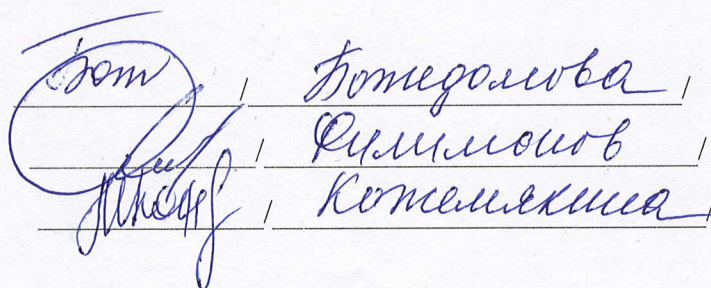 Бож / Божедомова /
/ Филимонов /
/ Кожемякина /